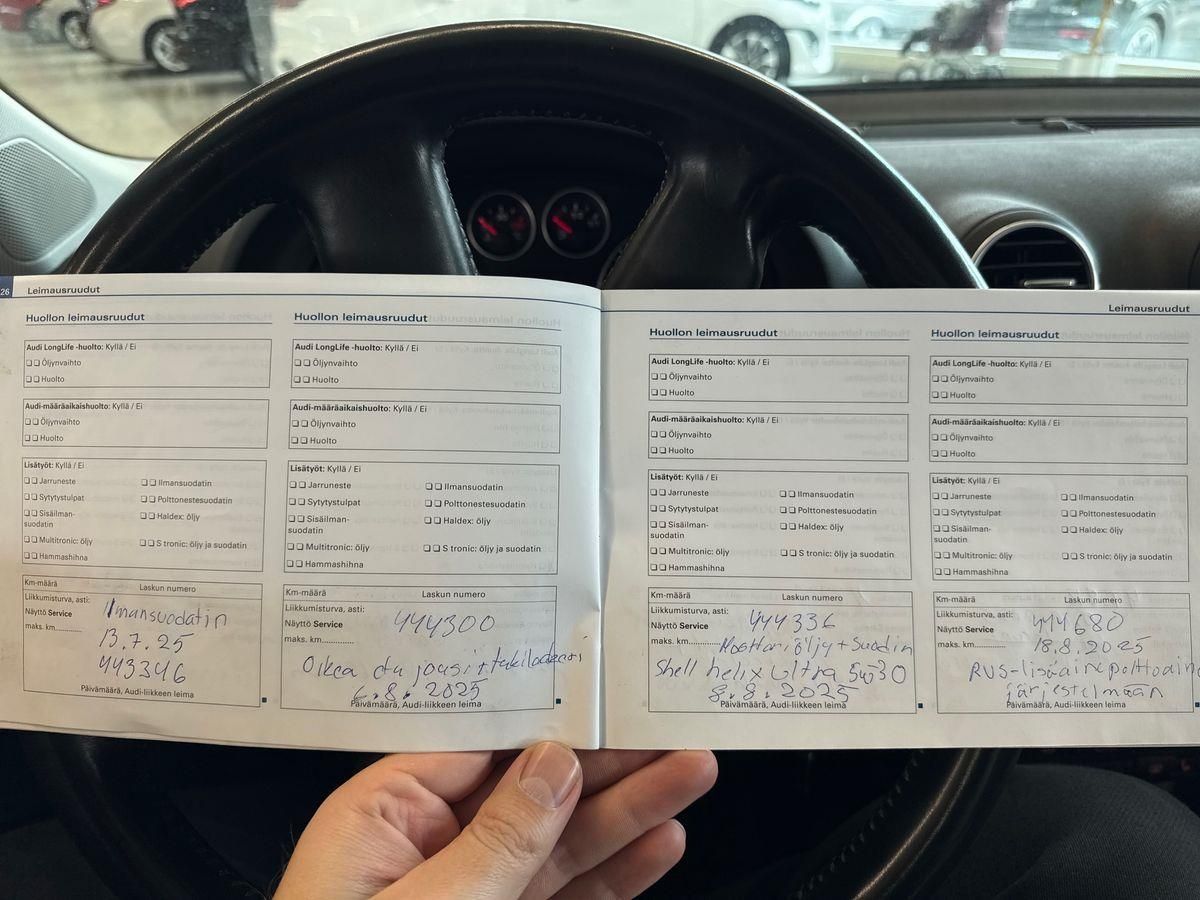 26
Leimausruudut
Huollon leimausruudut
Audi LongLife -huolto: Kyllä / Ei
Öljynvaihto
Huolto
Audi-määräaikaishuolto: Kyllä / Ei
Öljynvaihto
Huolto
Lisätyöt: Kyllä / Ei
Jarruneste
Ilmansuodatin
Sytytystulpat
Polttonestesuodatin
Sisäilman-
suodatin
Haldex: öljy
Multitronic: öljy
S tronic: öljy ja suodatin
Hammashihna
Km-määrä
Laskun numero
Liikkumisturva, asti:
Näyttö Service
maks. km.............
Ilmansuodatin
13.7.25
443346
Päivämäärä, Audi-liikkeen leima
Huollon leimausruudut
Audi LongLife -huolto: Kyllä / Ei
Öljynvaihto
Huolto
Audi-määräaikaishuolto: Kyllä / Ei
Öljynvaihto
Huolto
Lisätyöt: Kyllä / Ei
Jarruneste
Ilmansuodatin
Sytytystulpat
Polttonestesuodatin
Sisäilman-
suodatin
Haldex: öljy
Multitronic: öljy
S tronic: öljy ja suodatin
Hammashihna
Km-määrä
Laskun numero
Liikkumisturva, asti:
Näyttö Service
maks. km.............
444300
Oikea etu jousi+tukilaakeri
6.8.2025
Päivämäärä, Audi-liikkeen leima
Leimausruudut
Huollon leimausruudut
Audi LongLife -huolto: Kyllä / Ei
Öljynvaihto
Huolto
Audi-määräaikaishuolto: Kyllä / Ei
Öljynvaihto
Huolto
Lisätyöt: Kyllä / Ei
Jarruneste
Ilmansuodatin
Sytytystulpat
Polttonestesuodatin
Sisäilman-
suodatin
Haldex: öljy
Multitronic: öljy
S tronic: öljy ja suodatin
Hammashihna
Km-määrä
Laskun numero
Liikkumisturva, asti:
Näyttö Service
maks. km.............
444336
Moottoriöljy+Suodin
Shell helix ultra 5w30
8.8.2025
Päivämäärä, Audi-liikkeen leima
Huollon leimausruudut
Audi LongLife -huolto: Kyllä / Ei
Öljynvaihto
Huolto
Audi-määräaikaishuolto: Kyllä / Ei
Öljynvaihto
Huolto
Lisätyöt: Kyllä / Ei
Jarruneste
Ilmansuodatin
Sytytystulpat
Polttonestesuodatin
Sisäilman-
suodatin
Haldex: öljy
Multitronic: öljy
S tronic: öljy ja suodatin
Hammashihna
Km-määrä
Laskun numero
Liikkumisturva, asti:
Näyttö Service
maks. km.............
444680
18.8.2025
RVS-lisäaine polttoaine
järjestelmään
Päivämäärä, Audi-liikkeen leima